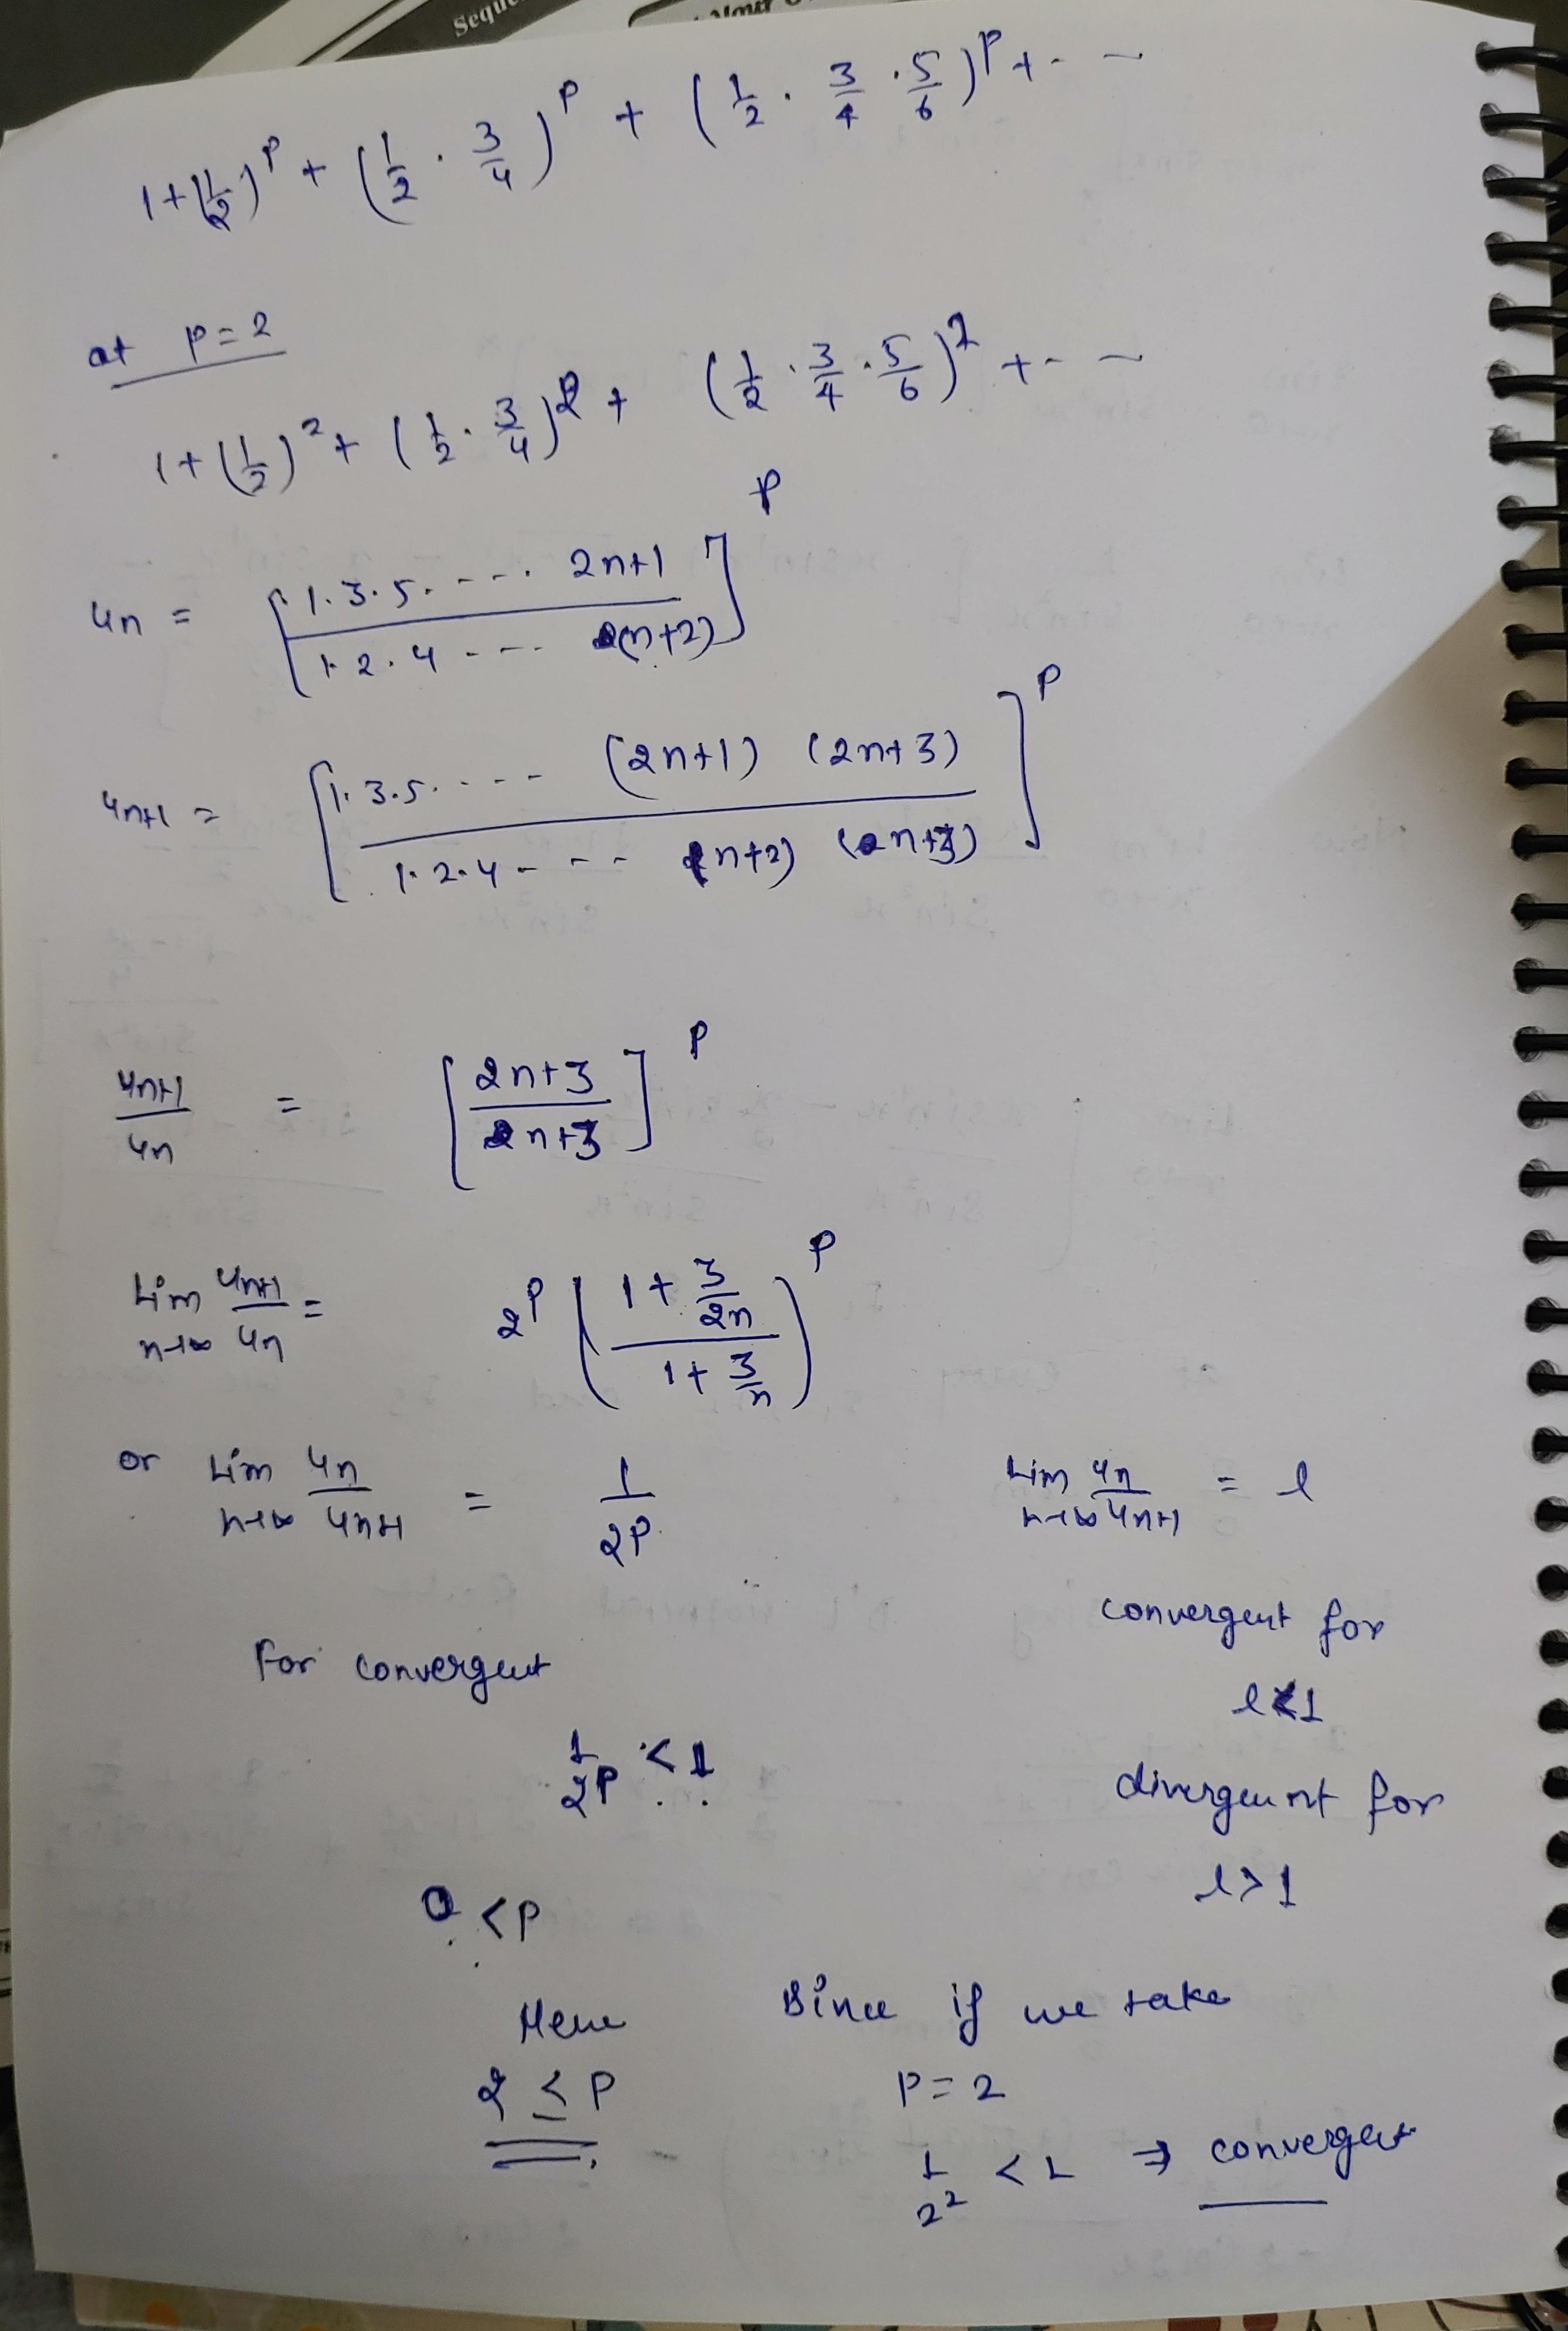 Sequ
1 + (1/2)^p + (1/2 . 3/4)^p + (1/2 . 3/4 . 5/6)^p + - - -
at p = 2
1 + (1/2)^2 + (1/2 . 3/4)^2 + (1/2 . 3/4 . 5/6)^2 + - - -
un = [1.3.5. - - - . 2n+1 / 1.2.4 - - - . 2(n+2)]^p
un+1 = [1.3.5. - - - (2n+1) (2n+3) / 1.2.4 - - - (n+2) (2n+3)]^p
un+1/un = [2n+3 / 2n+3]^p
Lim n→∞ un+1/un = 2^p (1 + 3/2n / 1 + 3/n)^p
or Lim n→∞ un/un+1 = 1/2^p Lim n→∞ un/un+1 = l
convergent for
For convergent
l<1
1/2^p < 1
divergeunt for
l>1
0 < p
Since if we take
Here
2 ≤ p p = 2
1/2^2 < 1 ⇒ convergent